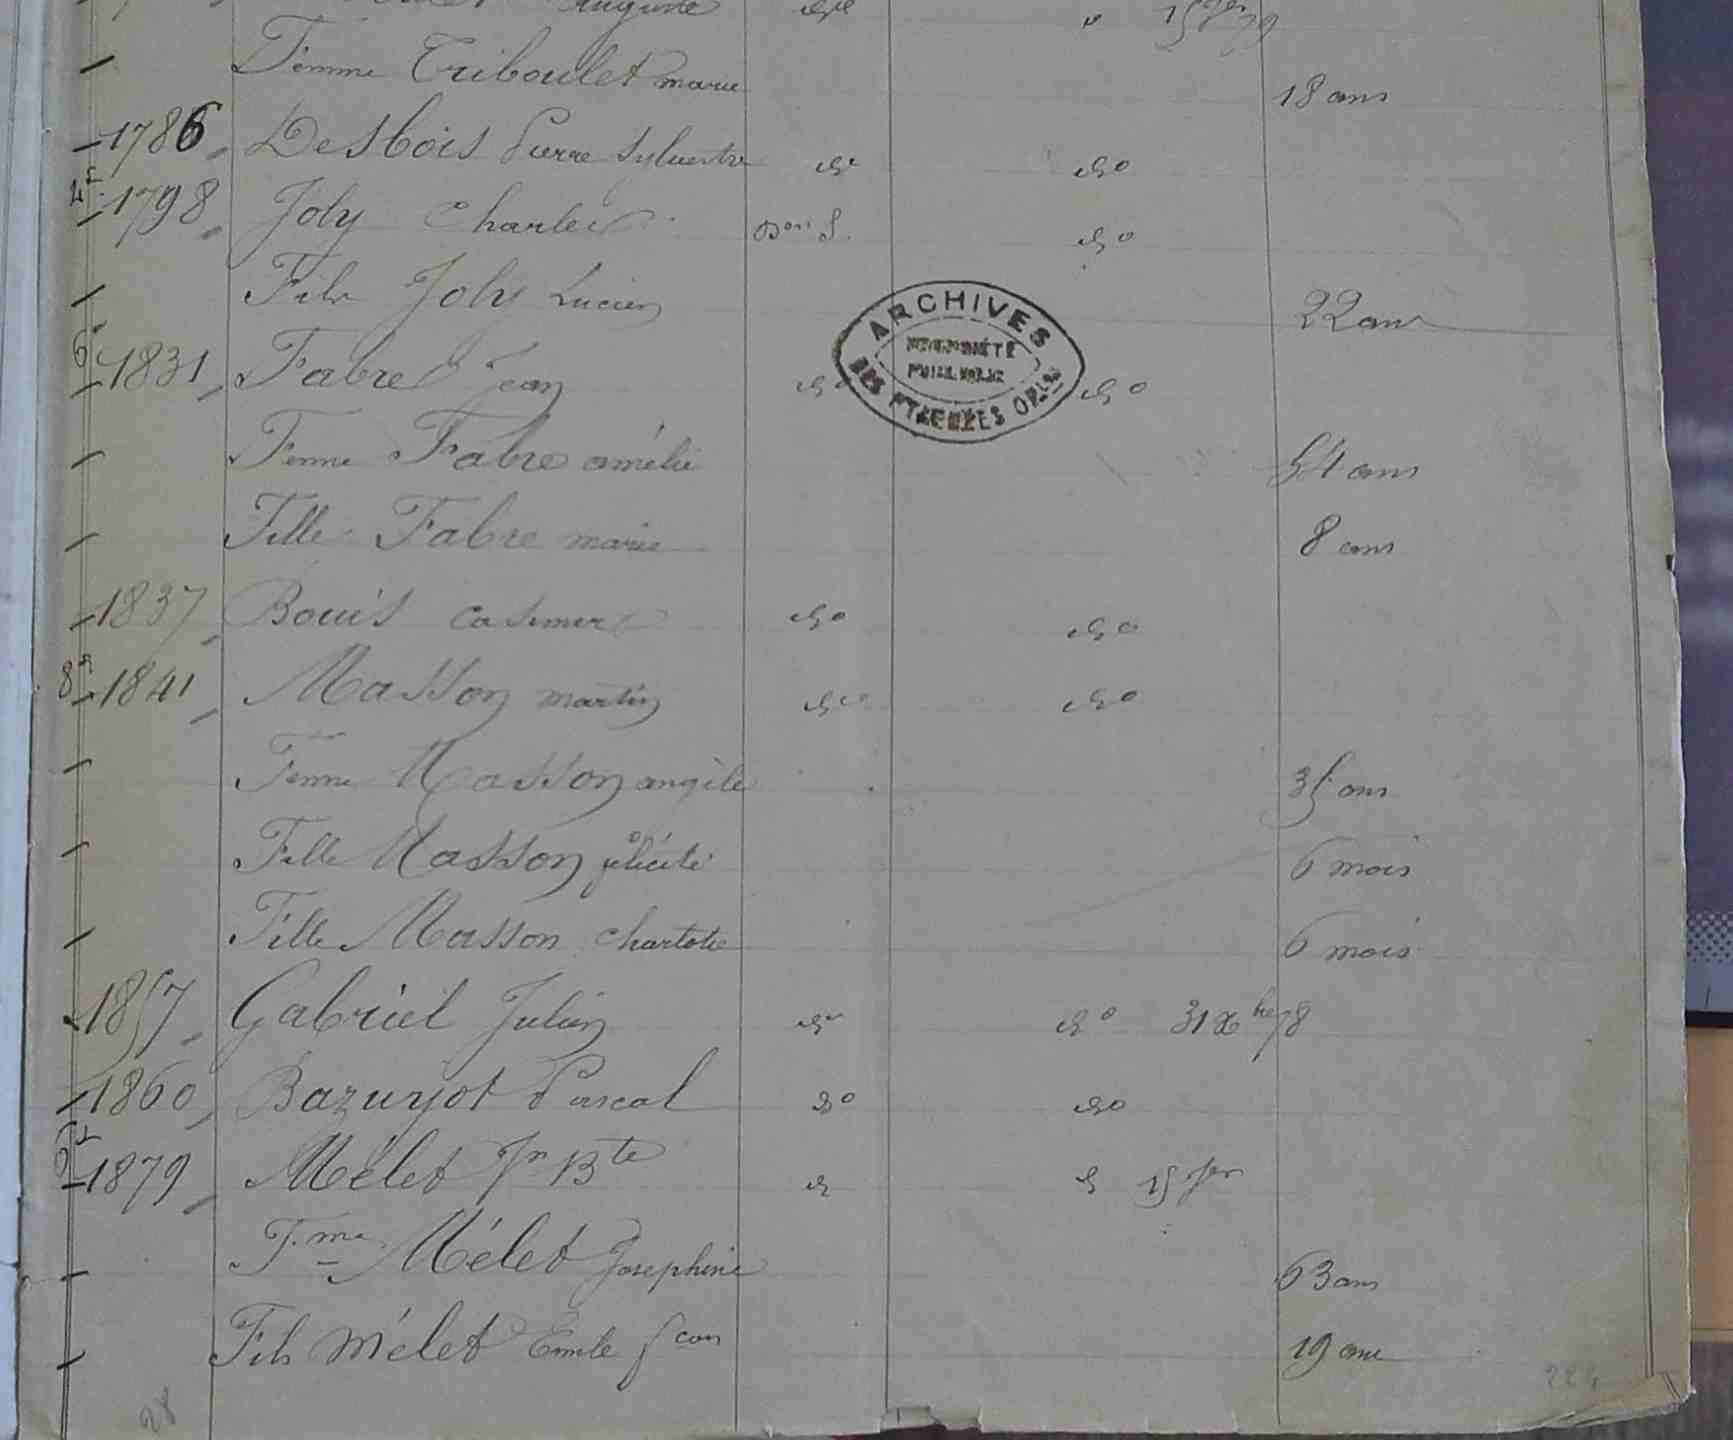 Auguste
Femme Triboulet Marie 18 ans
1786 Desbois Pierre Sylvestre do do
4 1798 Joly Charles do
Fils Joly Lucien 22 ans
ARCHIVES
PROPRIÉTÉ
PUBLIQUE
6 1831 Fabre Jean do do
Femme Fabre amélie 54 ans
Fille Fabre marie 8 ans
1837 Bouis Casimir do do
8 1841 Masson martin do do
Femme Masson angèle 35 ans
Fille Masson félicité 6 mois
Fille Masson charlotte 6 mois
1857 Gabriel Julien do do 31 Xbre 78
1860 Bazuyot Pascal do do
1879 Mélet Jn Bte d d 15 Jer
Fme Mélet Josephine 63 ans
Fils Mélet Emile fcois 19 ans
28